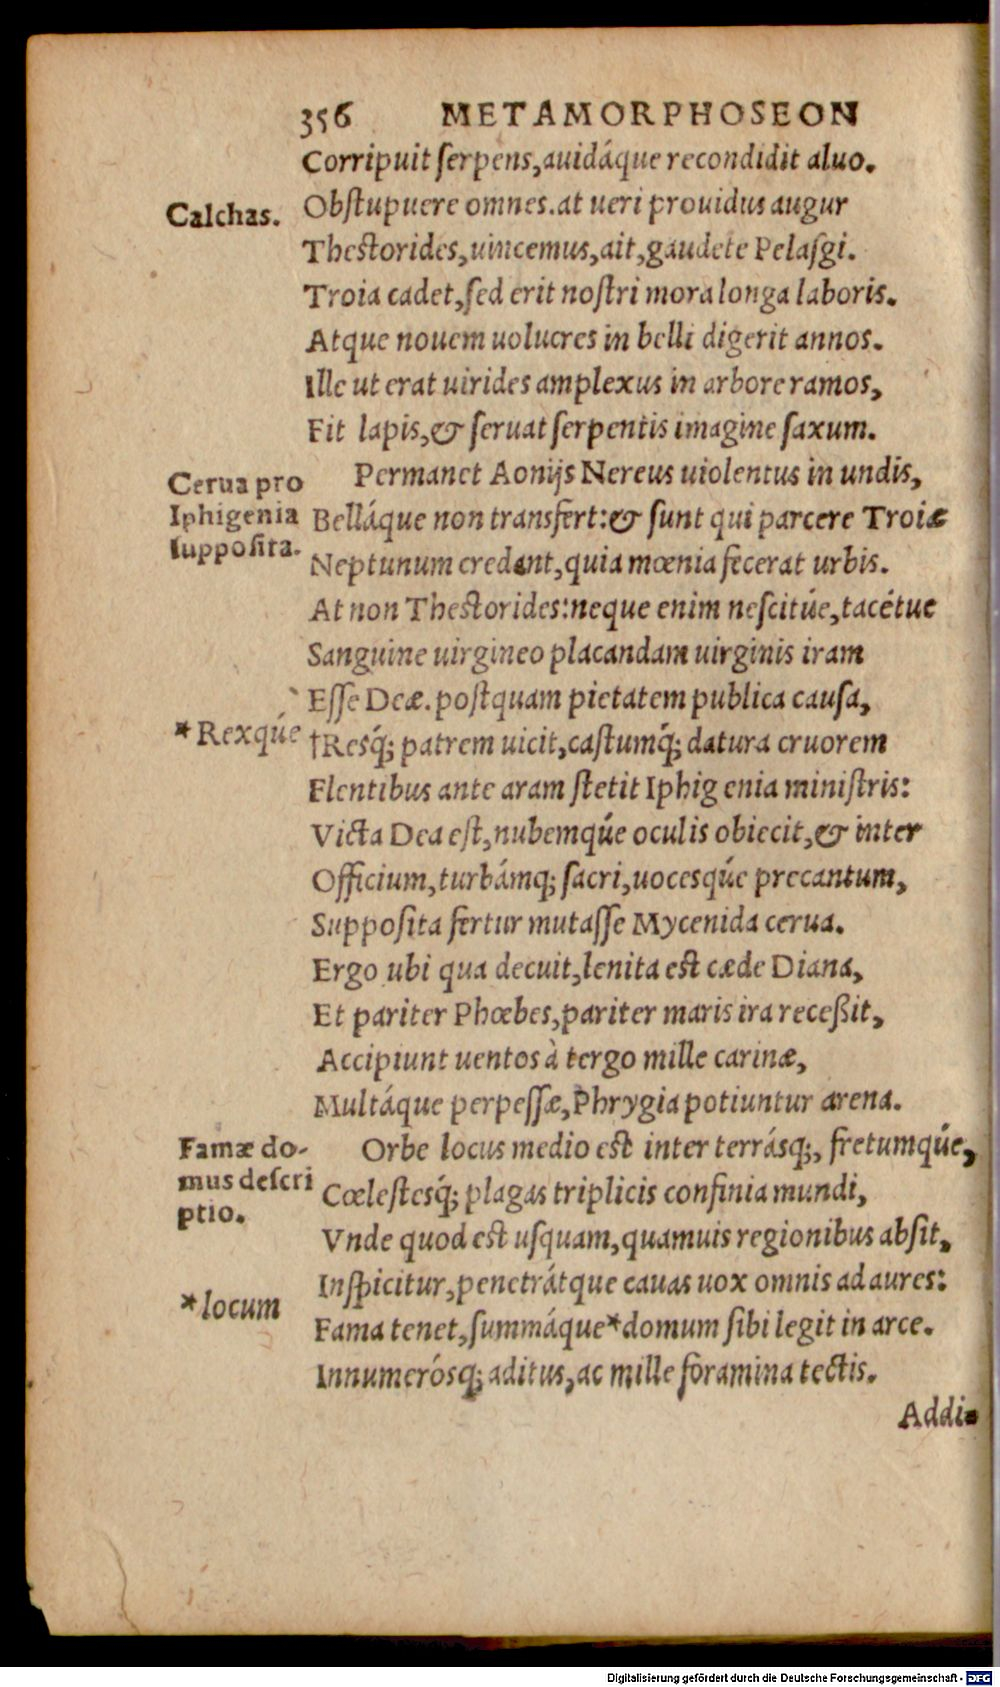 356 METAMORPHOSEON
Corripuit serpens,auidáque recondidit aluo.
Calchas.
Obstupuere omnes.at ueri prouidus augur
Thestorides,uincemus,ait,gaudete Pelasgi.
Troia cadet,sed erit nostri mora longa laboris.
Atque nouem uolucres in belli digerit annos.
Ille ut erat uirides amplexus in arbore ramos,
Fit lapis,& seruat serpentis imagine saxum.
Cerua pro
Iphigenia
supposita.
Permanet Aonijs Nereus uiolentus in undis,
Belláque non transfert:& sunt qui parcere Troiæ
Neptunum credant,quia mœnia fecerat urbis.
At non Thestorides:neque enim nescitúe,tacétue
Sanguine uirgineo placandam uirginis iram
Esse Deæ.postquam pietatem publica causa,
*Rexqúe
†Resq́; patrem uicit,castumq́; datura cruorem
Flentibus ante aram stetit Iphig enia ministris:
Victa Dea est,nubemqúe oculis obiecit,& inter
Officium,turbámq; sacri,uocesqúe precantum,
Supposita fertur mutasse Mycenida cerua.
Ergo ubi qua decuit,lenita est cæde Diana,
Et pariter Phœbes,pariter maris ira receßit,
Accipiunt uentos à tergo mille carinæ,
Multáque perpessæ,Phrygia potiuntur arena.
Famæ do-
mus descri
ptio.
Orbe locus medio est inter terrásq;, fretumqúe,
Cœlestesq́; plagas triplicis confinia mundi,
Vnde quod est usquam,quamuis regionibus absit,
Inspicitur,penetrátque cauas uox omnis ad aures:
*locum
Fama tenet,summáque*domum sibi legit in arce.
Innumerósq; aditus,ac mille foramina tectis.
Addi-
Digitalisierung gefördert durch die Deutsche Forschungsgemeinschaft - DFG